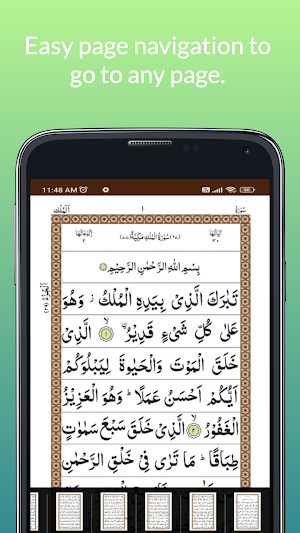 Easy page navigation to
go to any page.
11:48 AM
سُوْرَةُ ١ اَلْمُلْك
اٰيَاتُهَا ٣٠ (٦٧) سُوْرَةُ الْمُلْكِ مَكِّيَّةٌ (٧٧) رُكُوْعَاتُهَا ٢
بِسْمِ اللّٰهِ الرَّحْمٰنِ الرَّحِيْمِ
تَبٰرَكَ الَّذِيْ بِيَدِهِ الْمُلْكُ ز وَهُوَ
عَلٰى كُلِّ شَيْءٍ قَدِيْرُ ۙ ١ الَّذِيْ
خَلَقَ الْمَوْتَ وَالْحَيٰوةَ لِيَبْلُوَكُمْ
اَيُّكُمْ اَحْسَنُ عَمَلًا ؕ وَهُوَ الْعَزِيْزُ
الْغَفُوْرُ ۙ ٢ الَّذِيْ خَلَقَ سَبْعَ سَمٰوٰتٍ
طِبَاقًا ؕ مَا تَرٰى فِيْ خَلْقِ الرَّحْمٰنِ